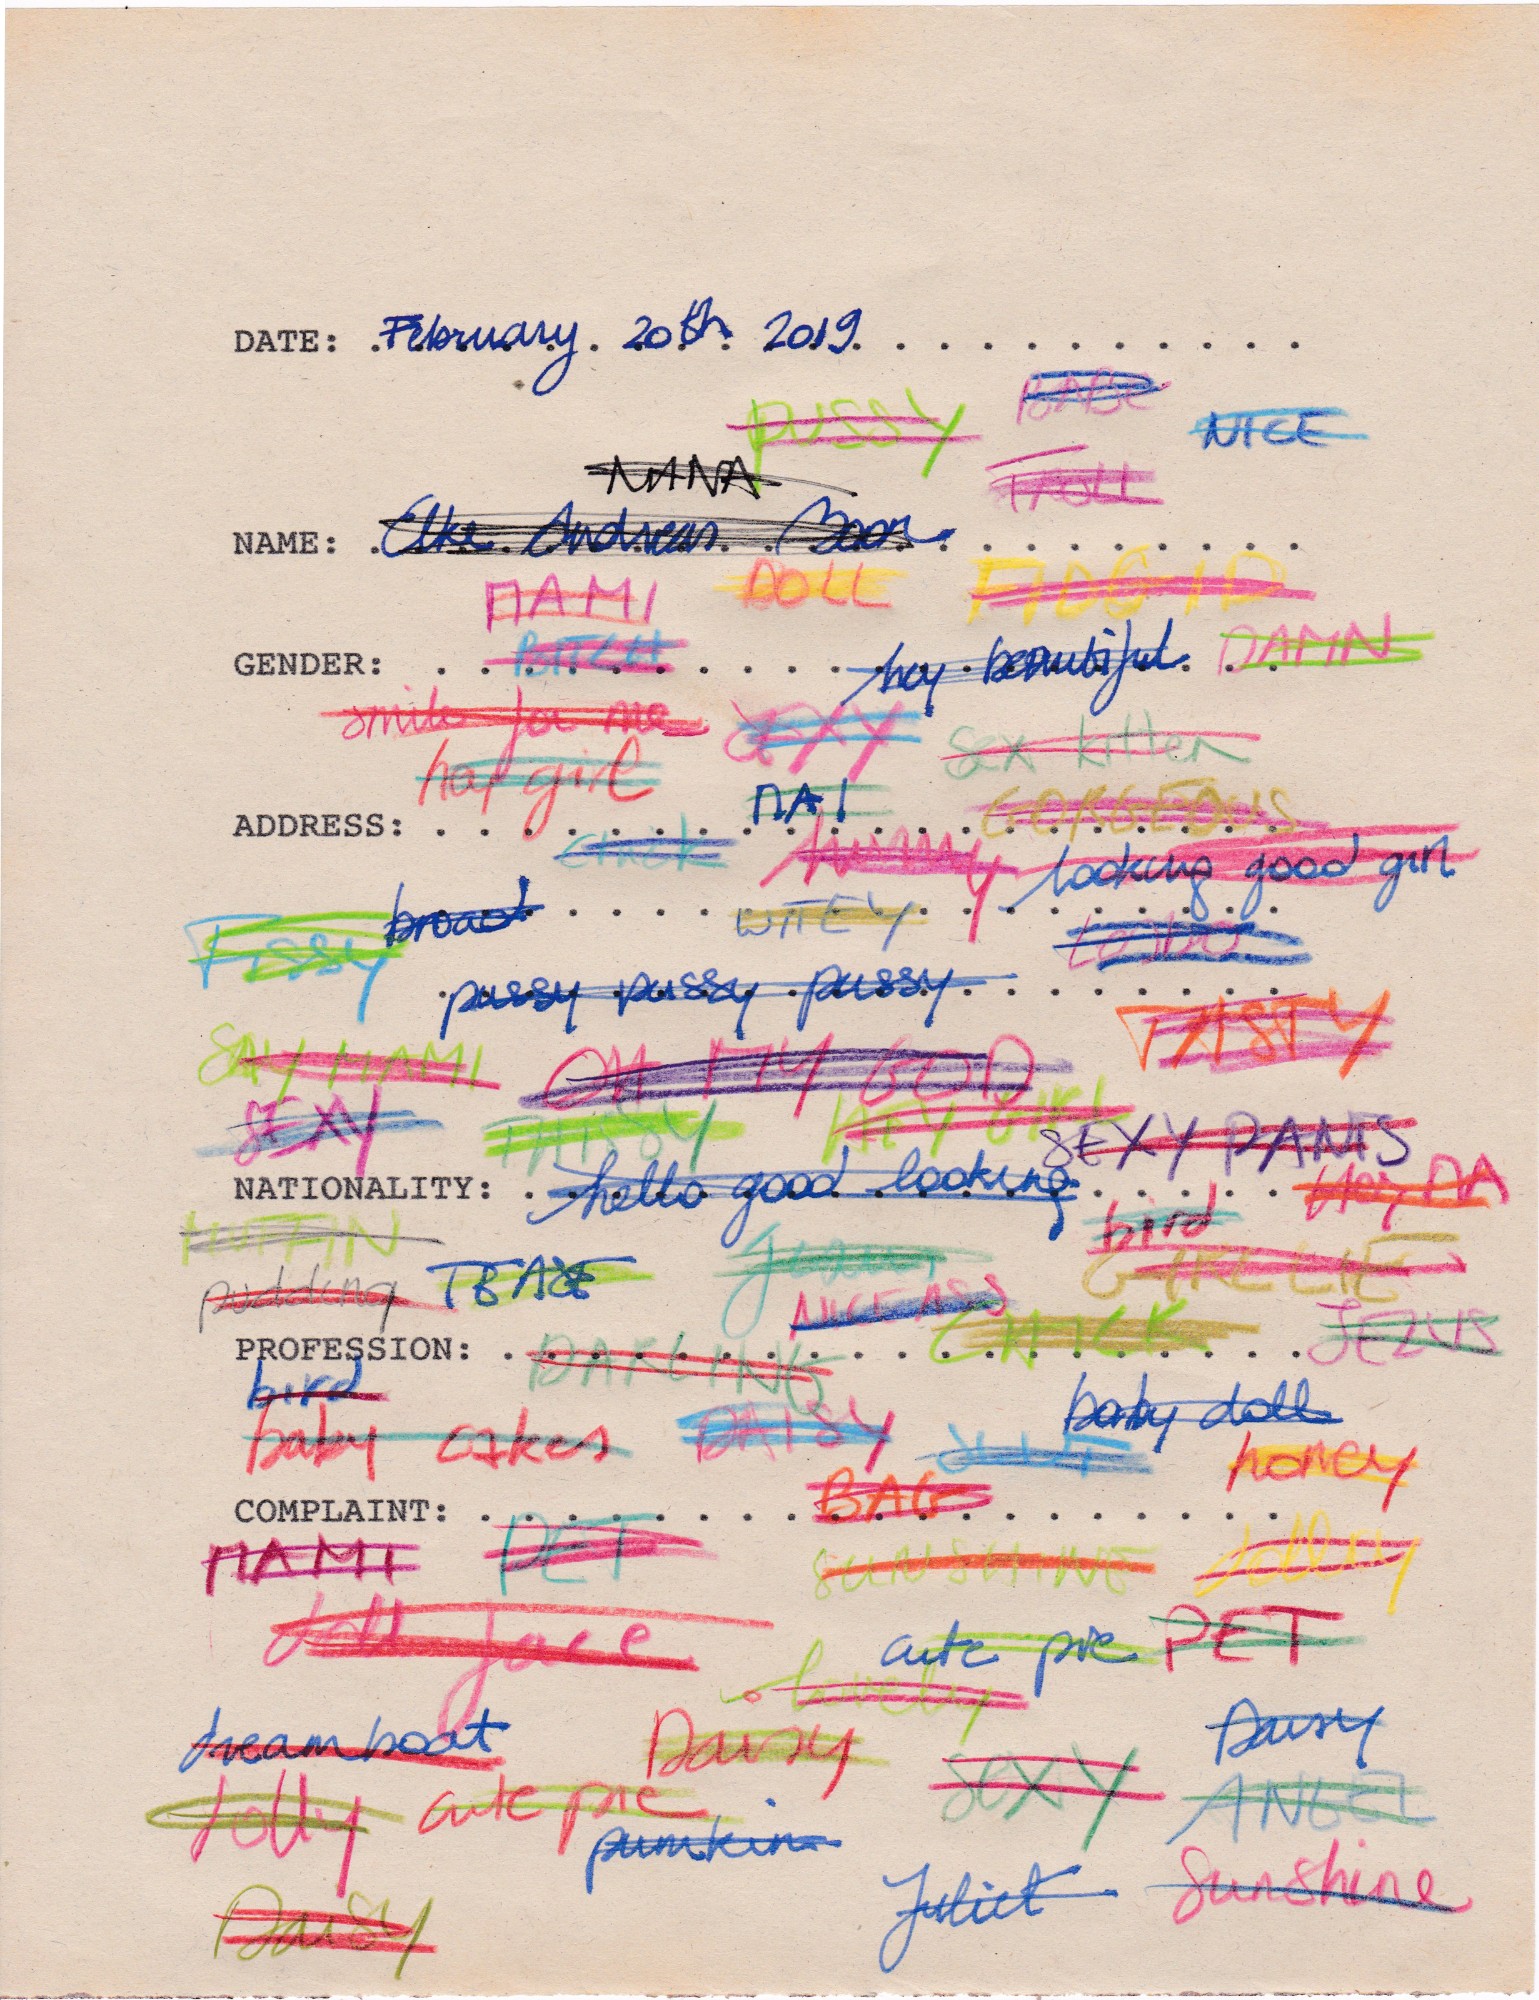 DATE: February 20th 2019
PUSSY BABE NICE
NANA TROLL
NAME: Elke Andreas Boon
MAMI DOLL
GENDER: BITCH hey beautiful DAMN
smile for me SEXY sex kitten
hot girl
ADDRESS: MAI GORGEOUS
chick looking good girl
broad WIFEY
pussy pussy pussy
SAY MAMI OH MY GOD TASTY
SEXY HEY GIRL SEXY PANTS
NATIONALITY: hello good looking Hey MA
MUFFIN bird GIRLLIE
pudding NICE ASS
PROFESSION: DARLING CHICK JEZUS
bird
baby cakes DAISY baby doll
honey
COMPLAINT: BAG
MAMI PET SUNSHINE
doll face cute pie PET
lovely
dreamboat Daisy Daisy
dolly cute pie SEXY ANGEL
pumkin
Juliet Sunshine
Daisy